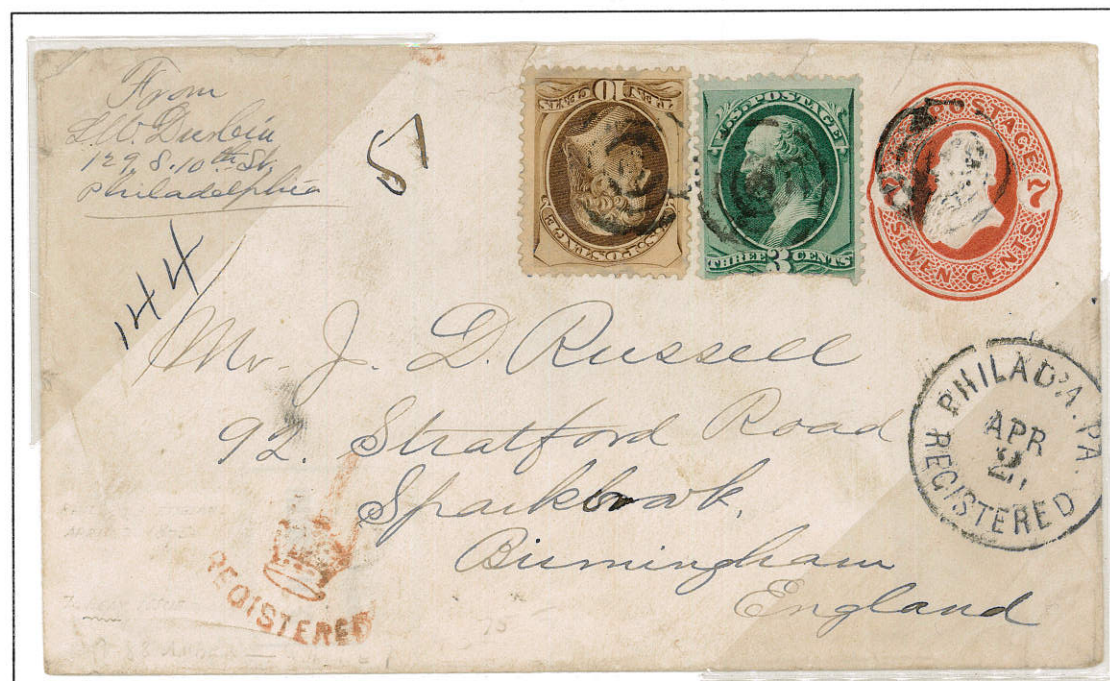 From
L.W. Durbin
129 S. 10th St,
Philadelphia
51
144
U.S. POSTAGE
TEN CENTS
10
U.S. POSTAGE
THREE 3 CENTS
U.S. POSTAGE
7 7
SEVEN CENTS
Mr. J. D. Russell
92. Stratford Road
Sparkbrook,
Birmingham
England
PHILAD'A. PA.
APR
2
REGISTERED
REGISTERED
75